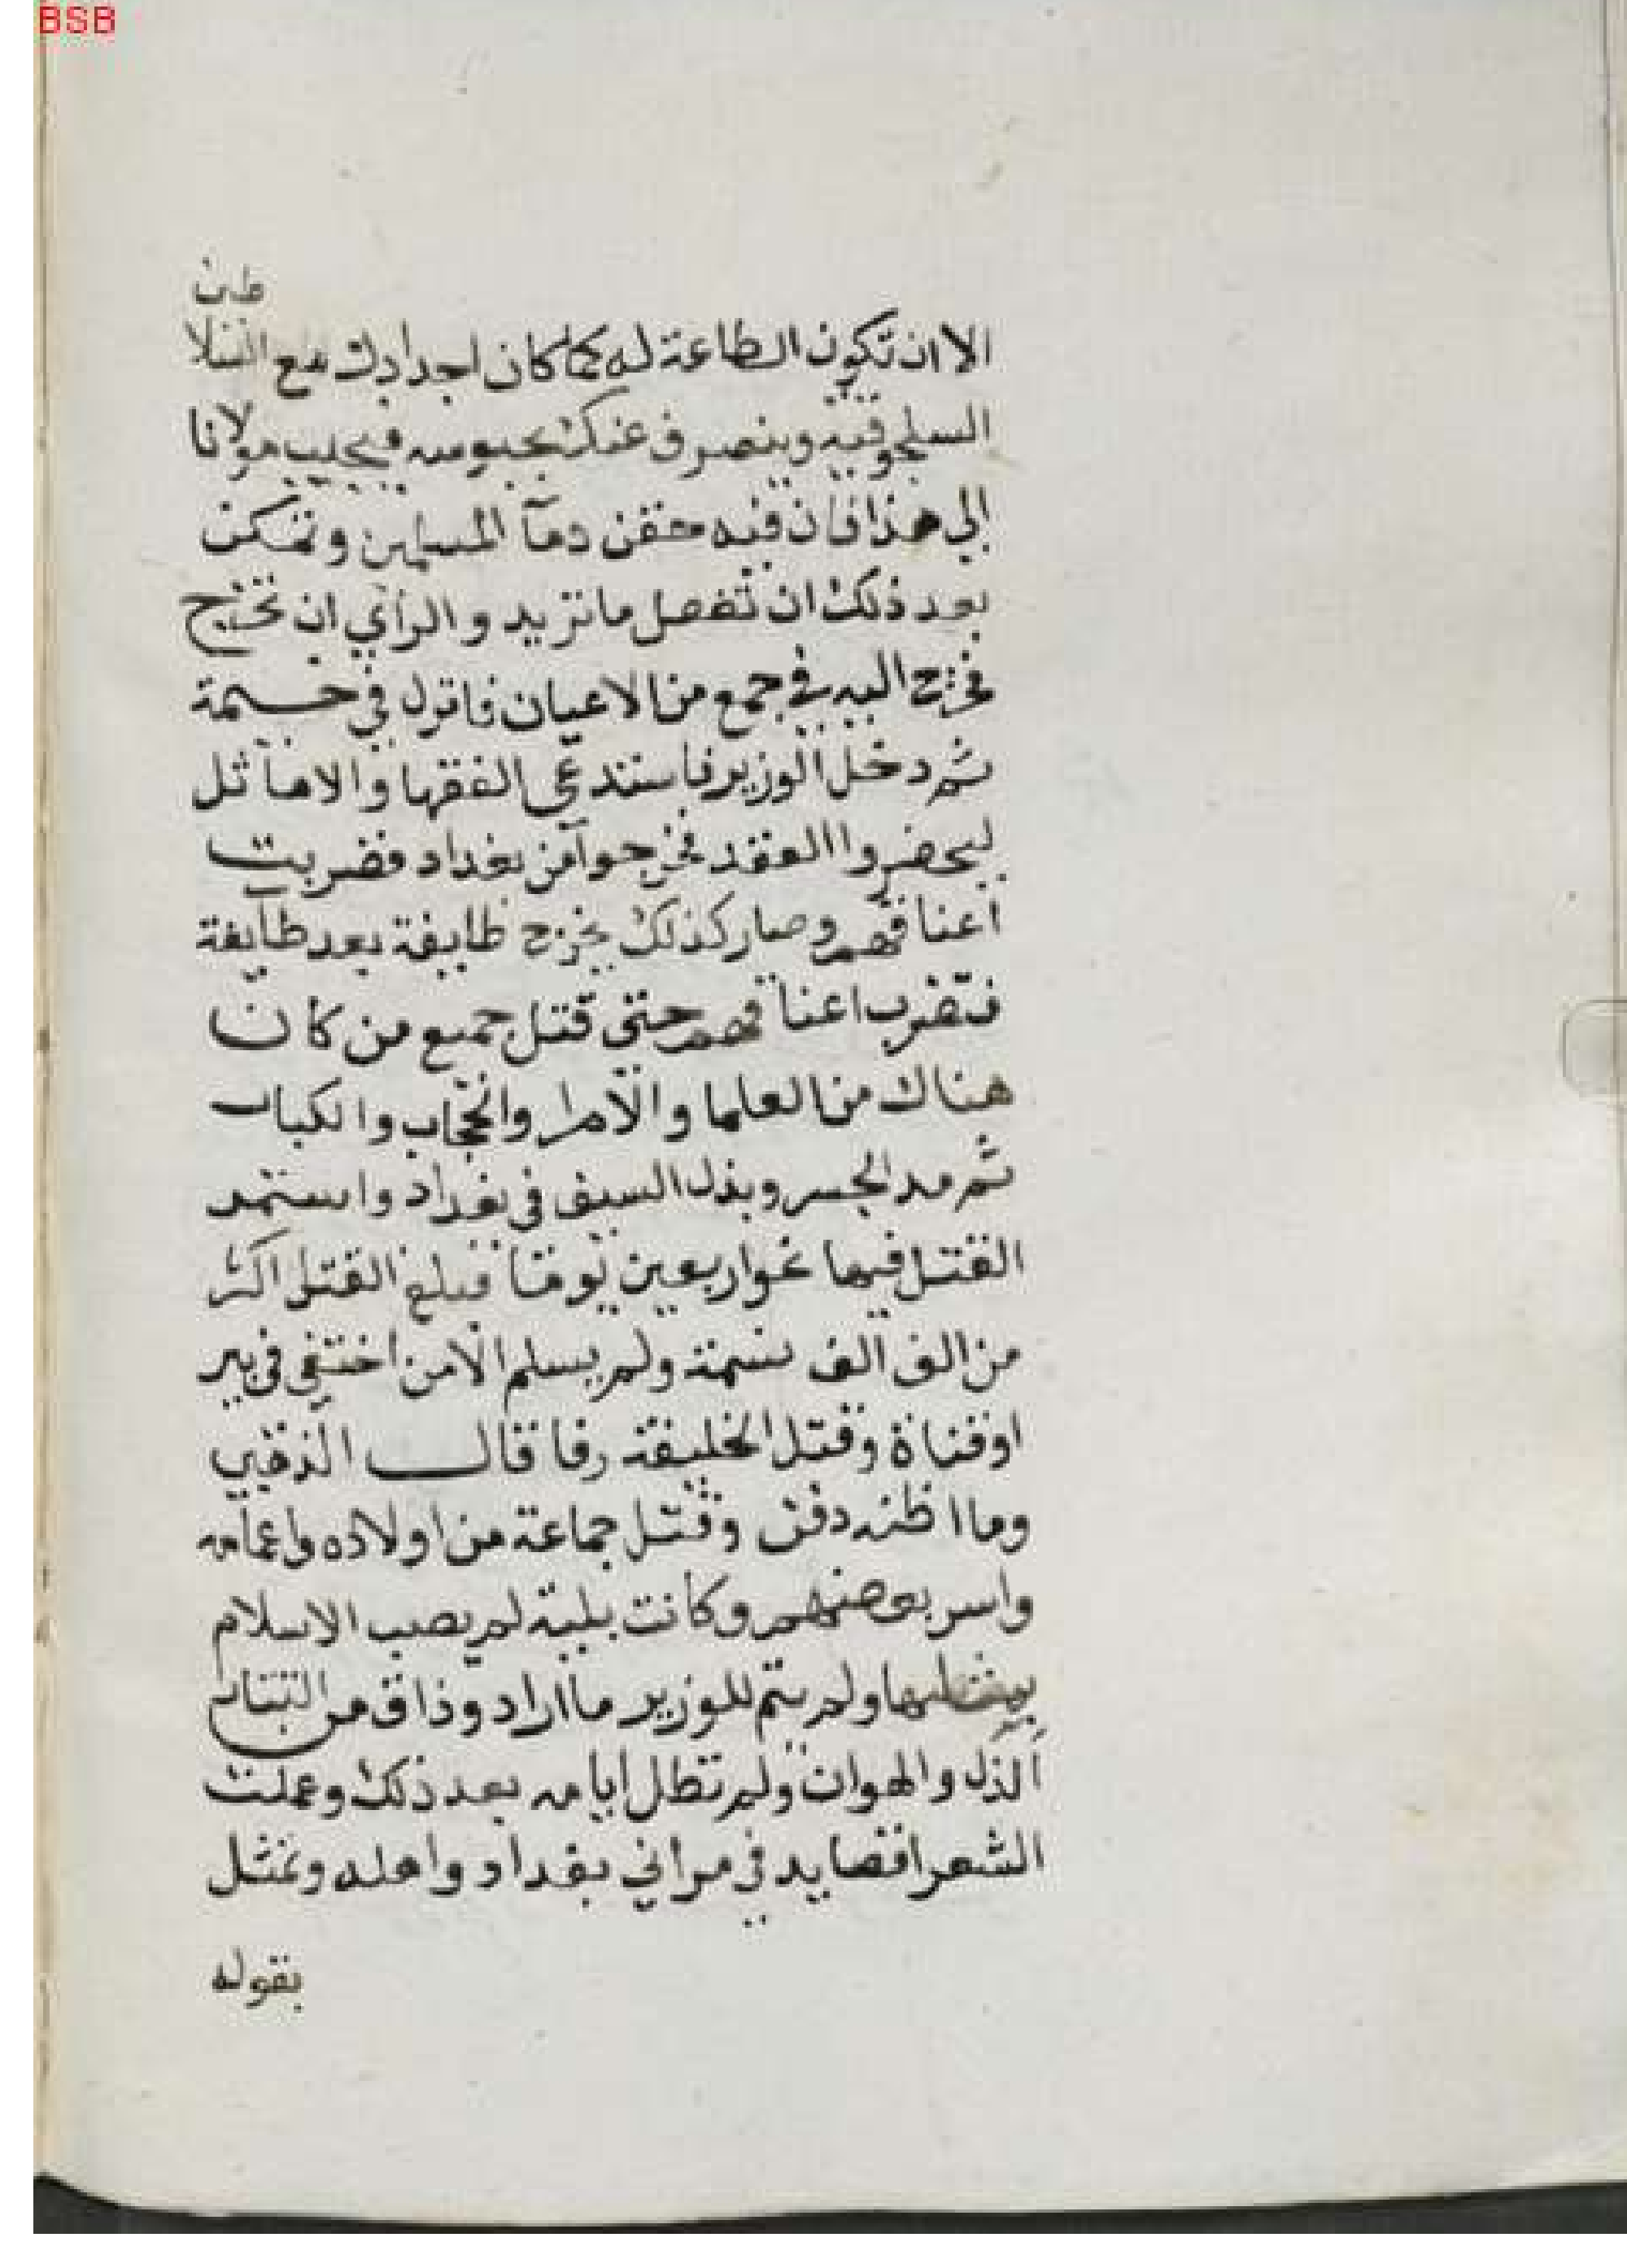 BSB
طين
الا ان تكون الطاعة له كما كان اجدادك مع السلا
السلجوقية وينصرف عنك بجيوشه فيجيب مولانا
الي هذا فان فيه حقن دمآ المسلمين وتمكن
بعد ذلك ان تفعل ما تريد والراي ان تخرج
فخرج اليه في جمع من الاعيان فانزل في خيمة
ثم دخل الوزير فاستدعي الفقها والاماثل
ليحضروا العقد فخرجوا من بغداد فضربت
اعناقهم وصار كذلك يخرج طايفة بعد طايفة
فتضرب اعناقهم حتى قتل جميع من كان
هناك من العلما والامرا والحجاب والكبار
ثم مد الجسر وبذل السيف في بغداد واستمر
القتل فيها نحو اربعين يوما فبلغ القتل اكثر
من الف الف نسمة ولم يسلم الا من اختفي في بير
او قناة وقتل الخليفة رفسا قال الذهبي
وما اظنه دفن وقتل جماعة من اولاده واعمامه
واسر بعضهم وكانت بلية لم يصب الاسلام
بمثلها ولم يتم للوزير ما اراد وذاق من التتار
الذل والهوان ولم تطل ايامه بعد ذلك وعملت
الشعرا قصايد في مراثي بغداد واهله وتمثل
بقوله